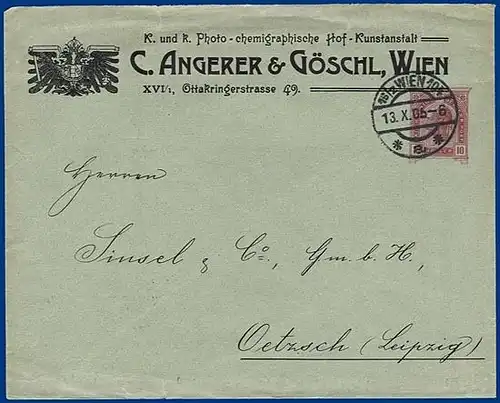 K. und k. Photo-chemigraphische Hof-Kunstanstalt
C. ANGERER & GÖSCHL, WIEN
XVI/1, Ottakringerstrasse 49.
WIEN
13.X.05-6
10
Herren
Sinsel & Co., Gm. b. H.,
Oetzsch (Leipzig)